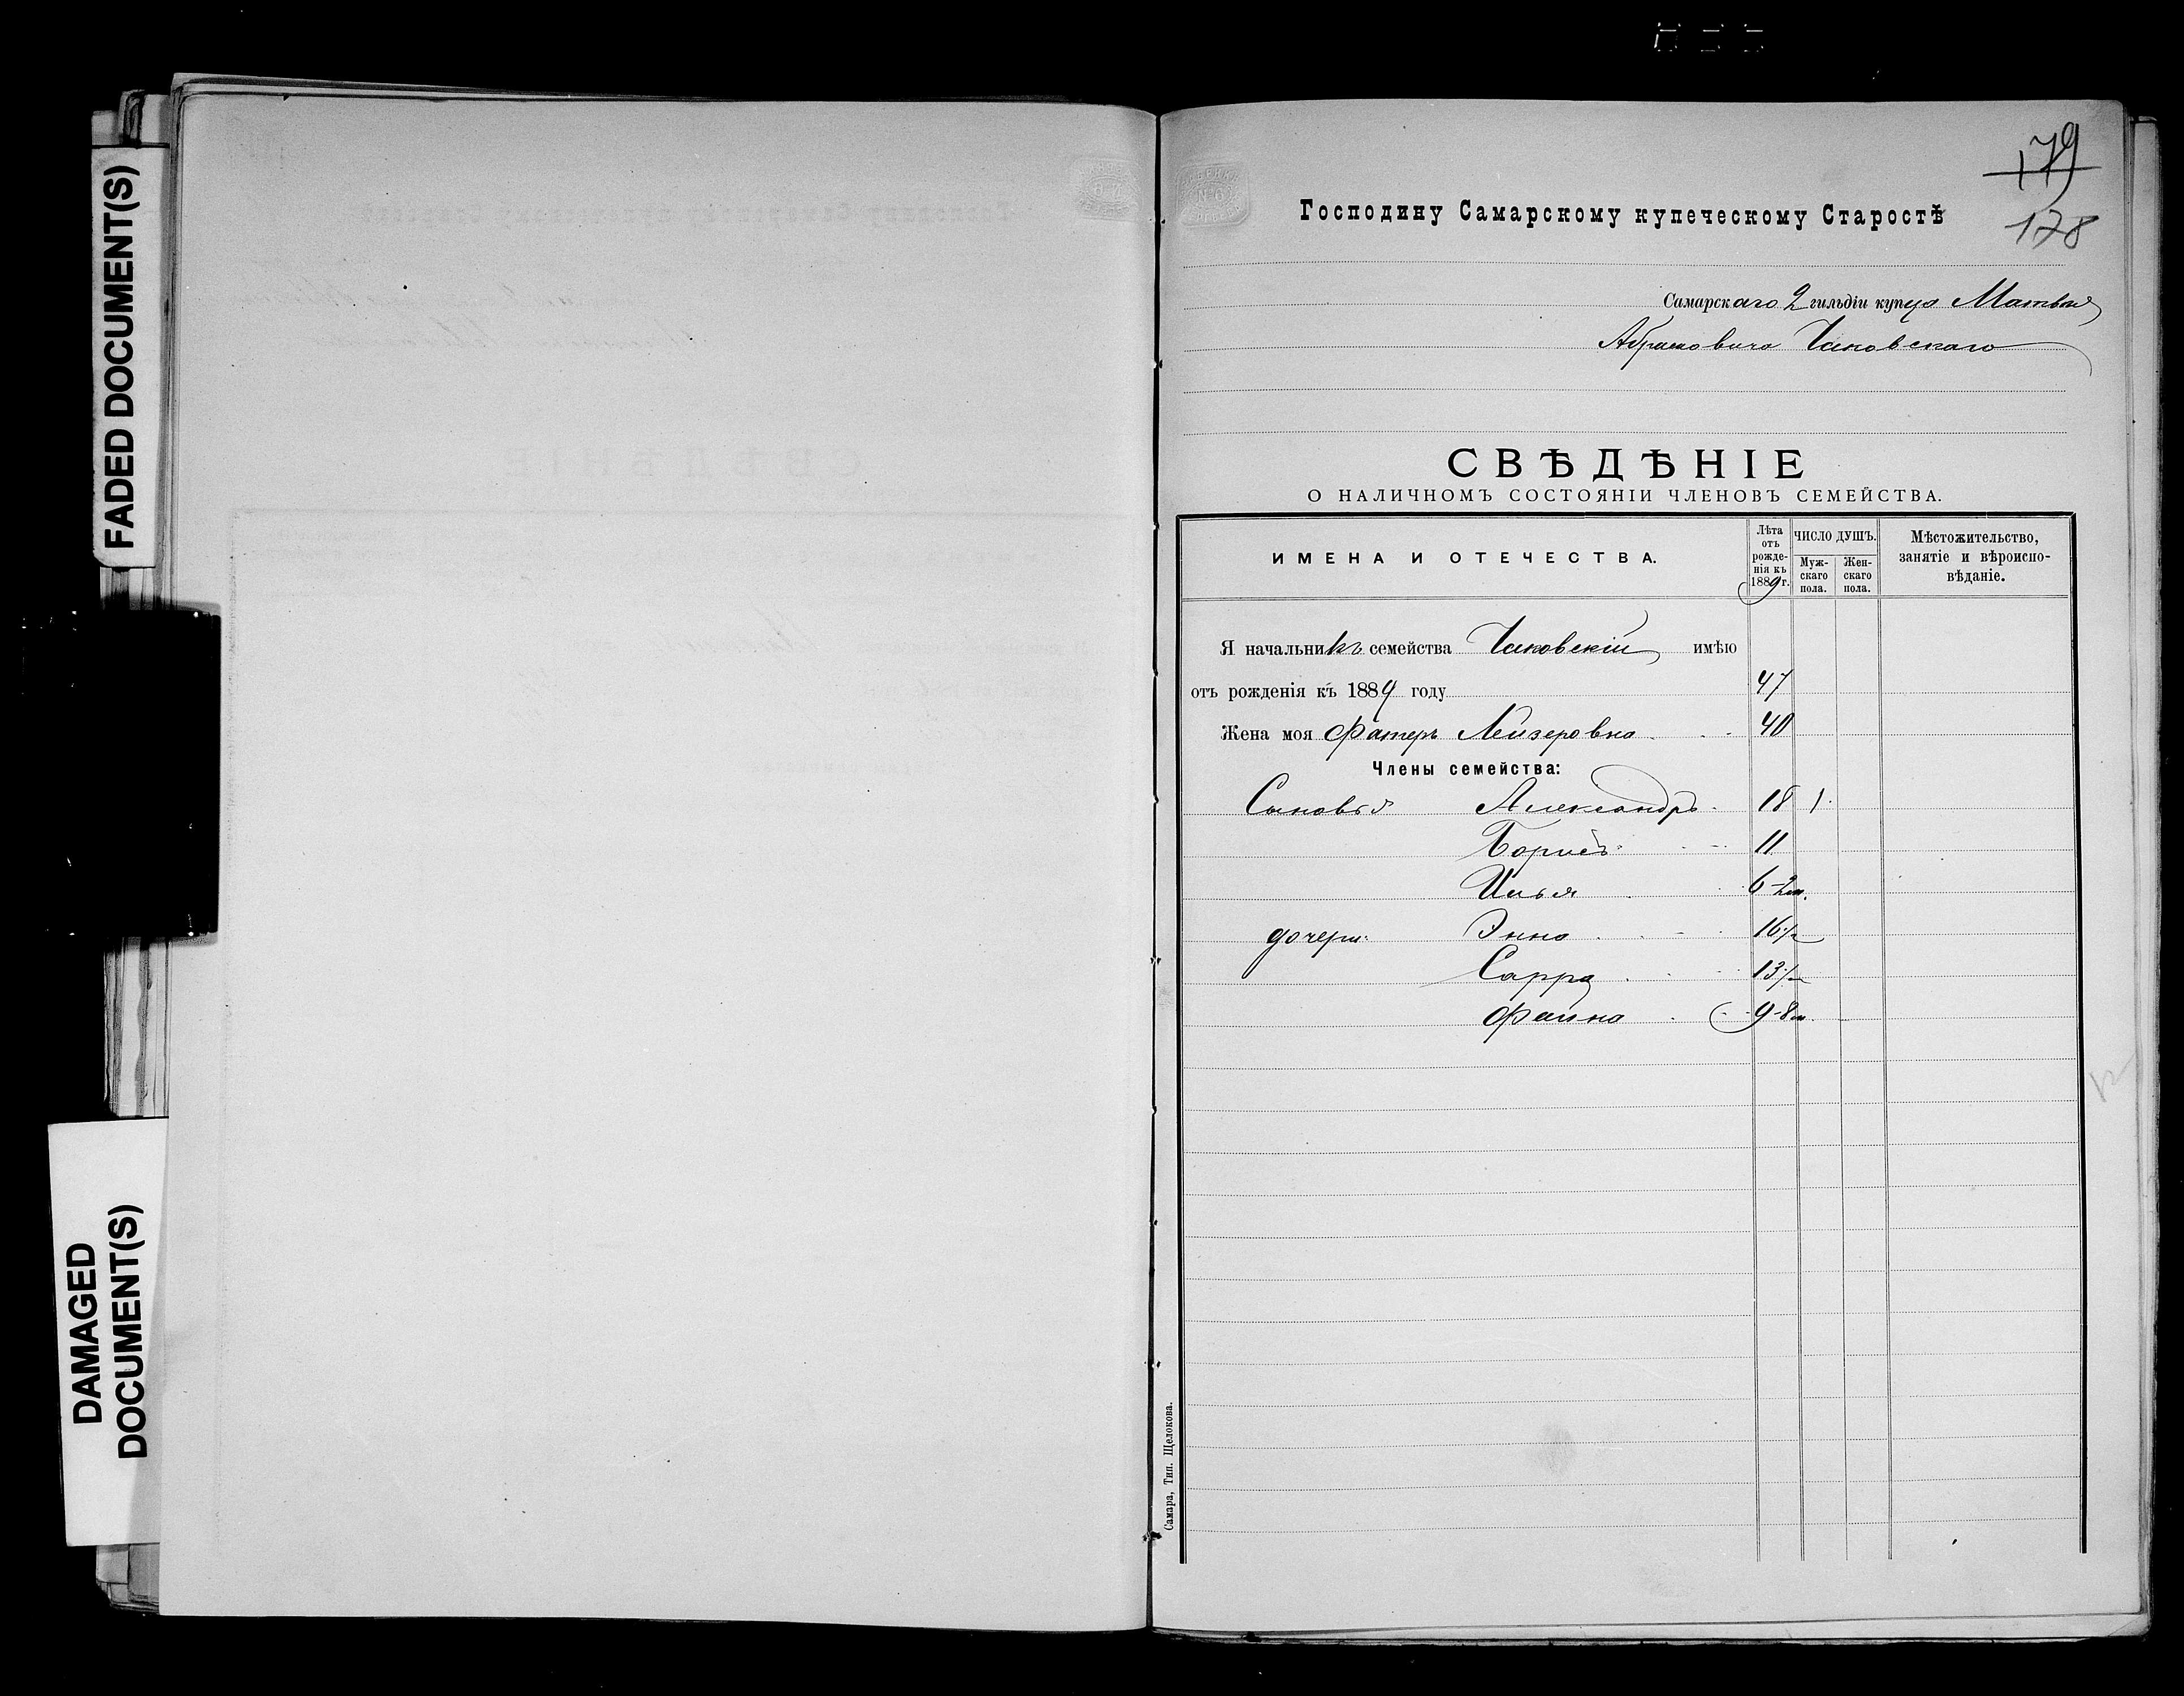 FADED DOCUMENT(S)
DAMAGED
DOCUMENT(S)
179
178
Господину Самарскому купеческому Старостѣ
Самарскаго 2 гильдіи купца Матвѣя
Абрамовича Чаковскаго
СВѢДѢНІЕ
О НАЛИЧНОМЪ СОСТОЯНІИ ЧЛЕНОВЪ СЕМЕЙСТВА.
ИМЕНА И ОТЕЧЕСТВА.
Лѣта отъ рожденія къ 1889 г.
ЧИСЛО ДУШЪ.
Мужскаго пола.
Женскаго пола.
Мѣстожительство, занятіе и вѣроисповѣданіе.
Я начальникъ семейства Чаковскій имѣю
отъ рожденія къ 1889 году 47
Жена моя Лейзеровна 40
Члены семейства:
Сыновья Александръ 18 1
Борисъ 11
Илья 6-2м.
дочери: Энна 16 1/2
Сарра 13 1/2
Фаина 9-8м.
Самара, Тип. Щелокова.